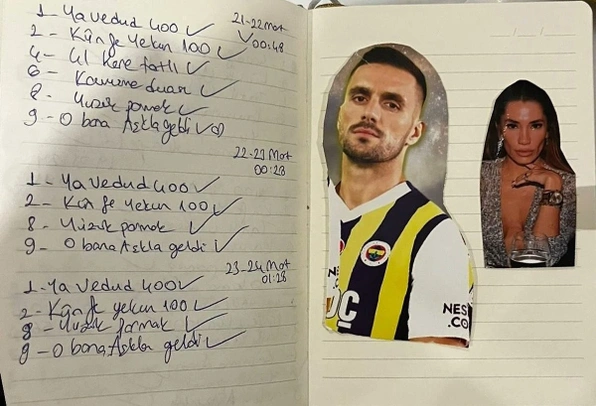 1 - Ya Vedud 400 ✓
21-22 Mart
2 - Kün fe Yekün 100 ✓
00:48
4 - 41 Kere fatı
6 - Kavuşma duası ✓
8 - Yüzük parmak ✓
9 - O bana Aşkla geldi ✓
22-23 Mart
00:28
1 - Ya Vedud 400 ✓
2 - Kün fe Yekün 100 ✓
8 - Yüzük parmak ✓
9 - O bana Aşkla geldi ✓
23-24 Mart
01:28
1 - Ya Vedud 400 ✓
2 - Kün fe yekün 100 ✓
8 - Yüzük parmak ✓
9 - O bana Aşkla geldi ✓
NES
.CO
NES
.CO